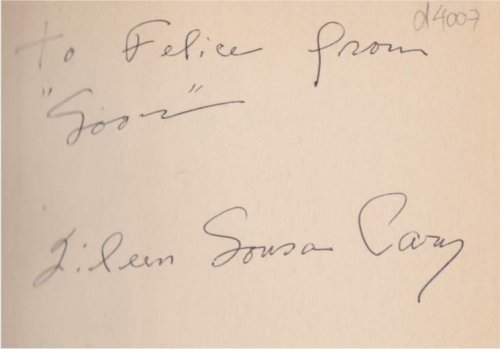 d4007
To Felice from
"Soos"
Eileen Sousa Cary